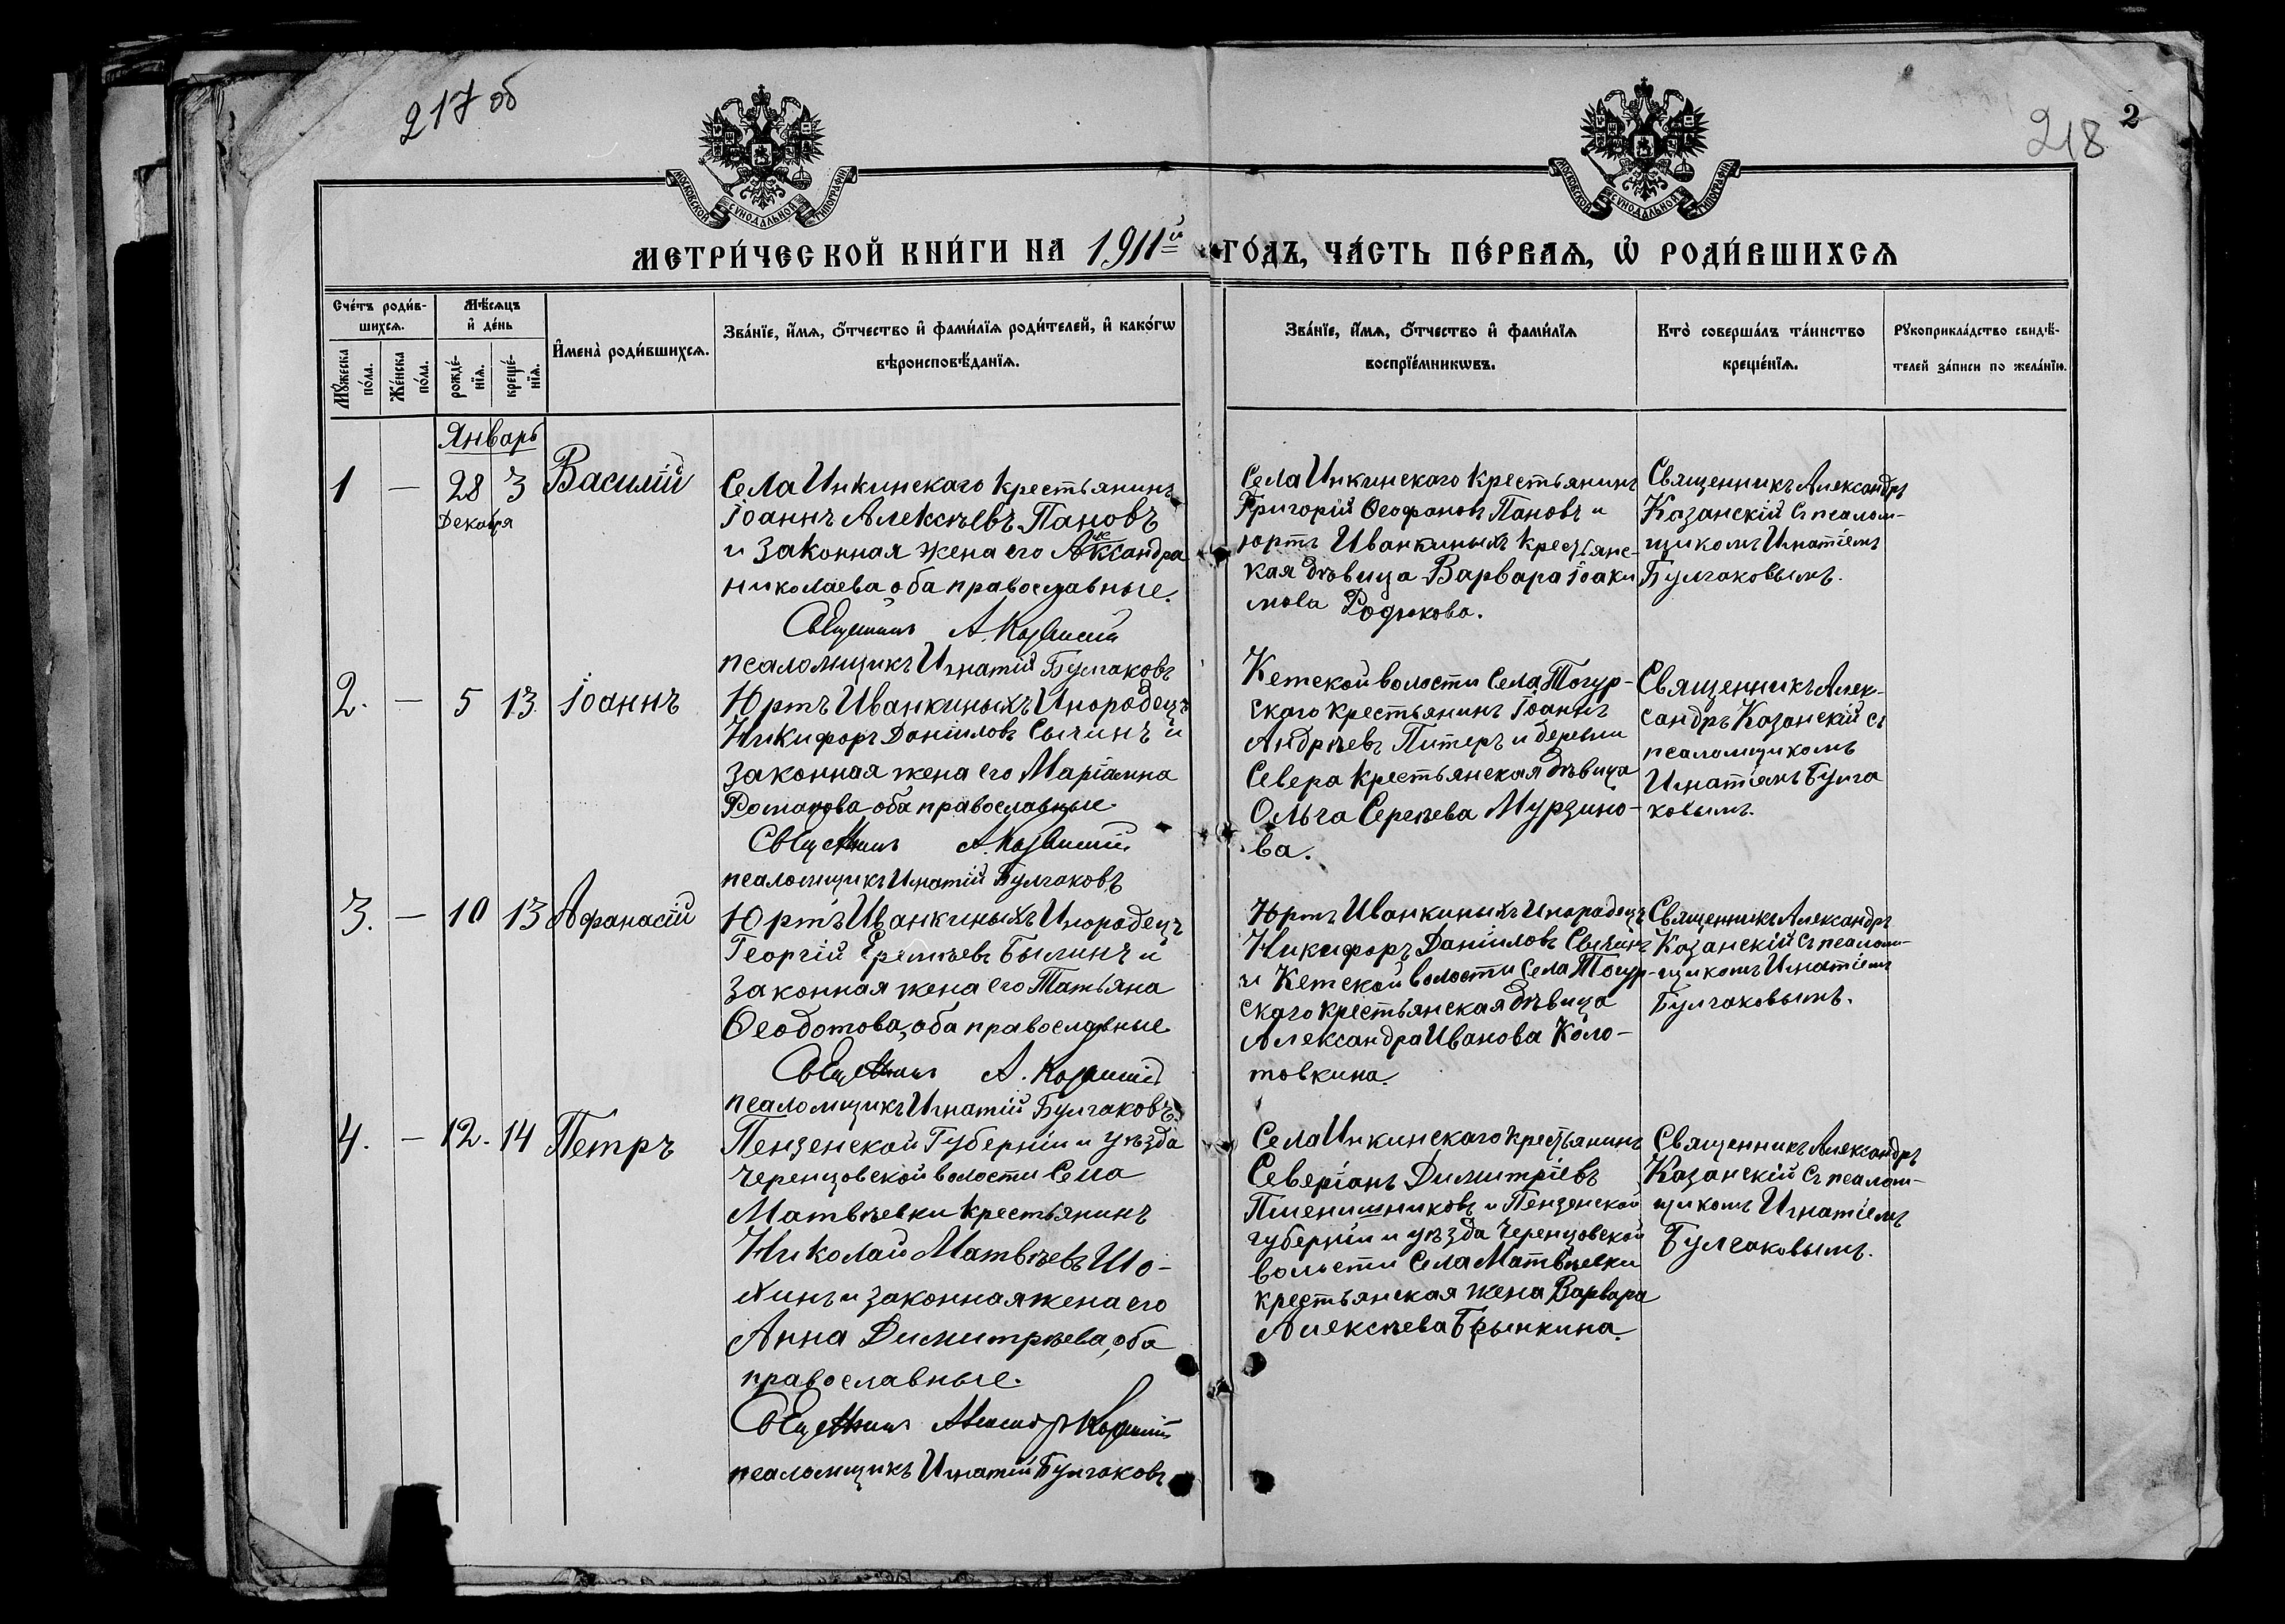 217 об
218
2
МОСКОВСКОЙ СѴНОДАЛЬНОЙ ТИПОГРАФІИ
МОСКОВСКОЙ СѴНОДАЛЬНОЙ ТИПОГРАФІИ
МЕТРИ́ЧЕСКОЙ КНИ́ГИ НА 1911й ГО́ДЪ, ЧА́СТЬ ПЕ́РВАѦ, Ѡ҆ РОДИ́ВШИХСѦ
Сче́тъ роди́в-
шихсѧ.
Мꙋ́жеска
по́ла.
Же́нска
по́ла.
Мѣ́сѧцъ
и҆ де́нь
рожде́-
нїѧ.
креще́-
нїѧ.
И҆мена̀ роди́вшихсѧ.
Зва́нїе, и҆́мѧ, ѻ҆́тчество и҆ фами́лїѧ роди́телей, и҆ како́гѡ
вѣроисповѣ́данїѧ.
Зва́нїе, и҆́мѧ, ѻ҆́тчество и҆ фами́лїѧ
воспрїе́мникѡвъ.
Кто̀ соверша́лъ та́инство
креще́нїѧ.
Рꙋкоприкла́дство свидѣ́-
телей за́писи по жела́нїю.
Январь
1 — 28 3 Василій
Декабря
Села Инкинскаго крестьянинъ
Іоаннъ Алексѣевъ Пановъ
и законная жена его Александра
Николаева, оба православные.
Священникъ А. Казанскій
псаломщикъ Игнатій Булгаковъ
Села Инкинскаго крестьянинъ
Григорій Ѳеофановъ Пановъ и
юртъ Иванкиныхъ крестьянс-
кая дѣвица Варвара Іоаки
мова Родюкова.
Священникъ Александръ
Казанскій съ псалом-
щикомъ Игнатіемъ
Булгаковымъ.
2. — 5 13 Іоаннъ
Юртъ Иванкиныхъ Инородецъ
Никифоръ Даніиловъ Сычинъ и
законная жена его Маріамна
Романова оба православные
Священникъ А. Казанскій
псаломщикъ Игнатій Булгаковъ
Кетской волости Села Тогур-
скаго крестьянинъ Іоаннъ
Андреевъ Питеръ и деревни
Севера крестьянская дѣвица
Ольга Сергѣева Мурзино-
ва.
Священникъ Алек-
сандръ Казанскій съ
псаломщикомъ
Игнатіемъ Булга
ковымъ.
3. — 10 13 Афанасій
Юртъ Иванкиныхъ Инородецъ
Георгій Ермѣевъ Былинъ и
законная жена его Татьяна
Ѳеодотова, оба православные
Священникъ А. Казанскій
псаломщикъ Игнатій Булгаковъ.
Юртъ Иванкиныхъ Инородецъ
Никифоръ Даніиловъ Сычинъ
и Кетской волости села Тогур-
скаго крестьянская дѣвица
Александра Иванова Коло-
товкина.
Священникъ Александръ
Казанскій съ псалом-
щикомъ Игнатіемъ
Булгаковымъ.
4. — 12. 14 Петръ
Пензенской Губерніи и уѣзда
Черенцовской волости Села
Матвѣевки крестьянинъ
Николай Матвѣевъ Шо-
хинъ и законная жена его
Анна Димитрѣева, оба
православные.
Священникъ Александръ Казанскій
псаломщикъ Игнатій Булгаковъ
Села Инкинскаго крестьянинъ
Северіанъ Димитріевъ
Пшенишниковъ и Пензенской
губерніи и уѣзда Черенцовской
волости Села Матвѣевки
крестьянская жена Варвара
Алексѣева Брынкина.
Священникъ Александръ
Казанскій съ псалом-
щикомъ Игнатіемъ
Булгаковымъ.